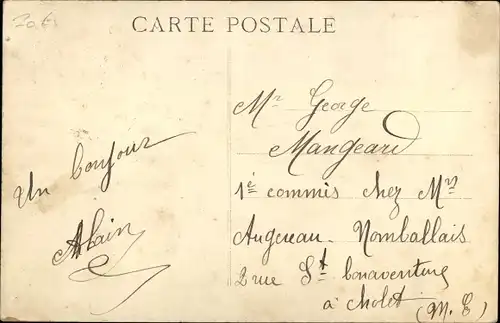 20 €
CARTE POSTALE
Un bonjour
Alain
Mr George
Mangeard
1é commis chez Mrs
Augereau-Nomballais
2 rue St bonaventure
à cholet (M. L)